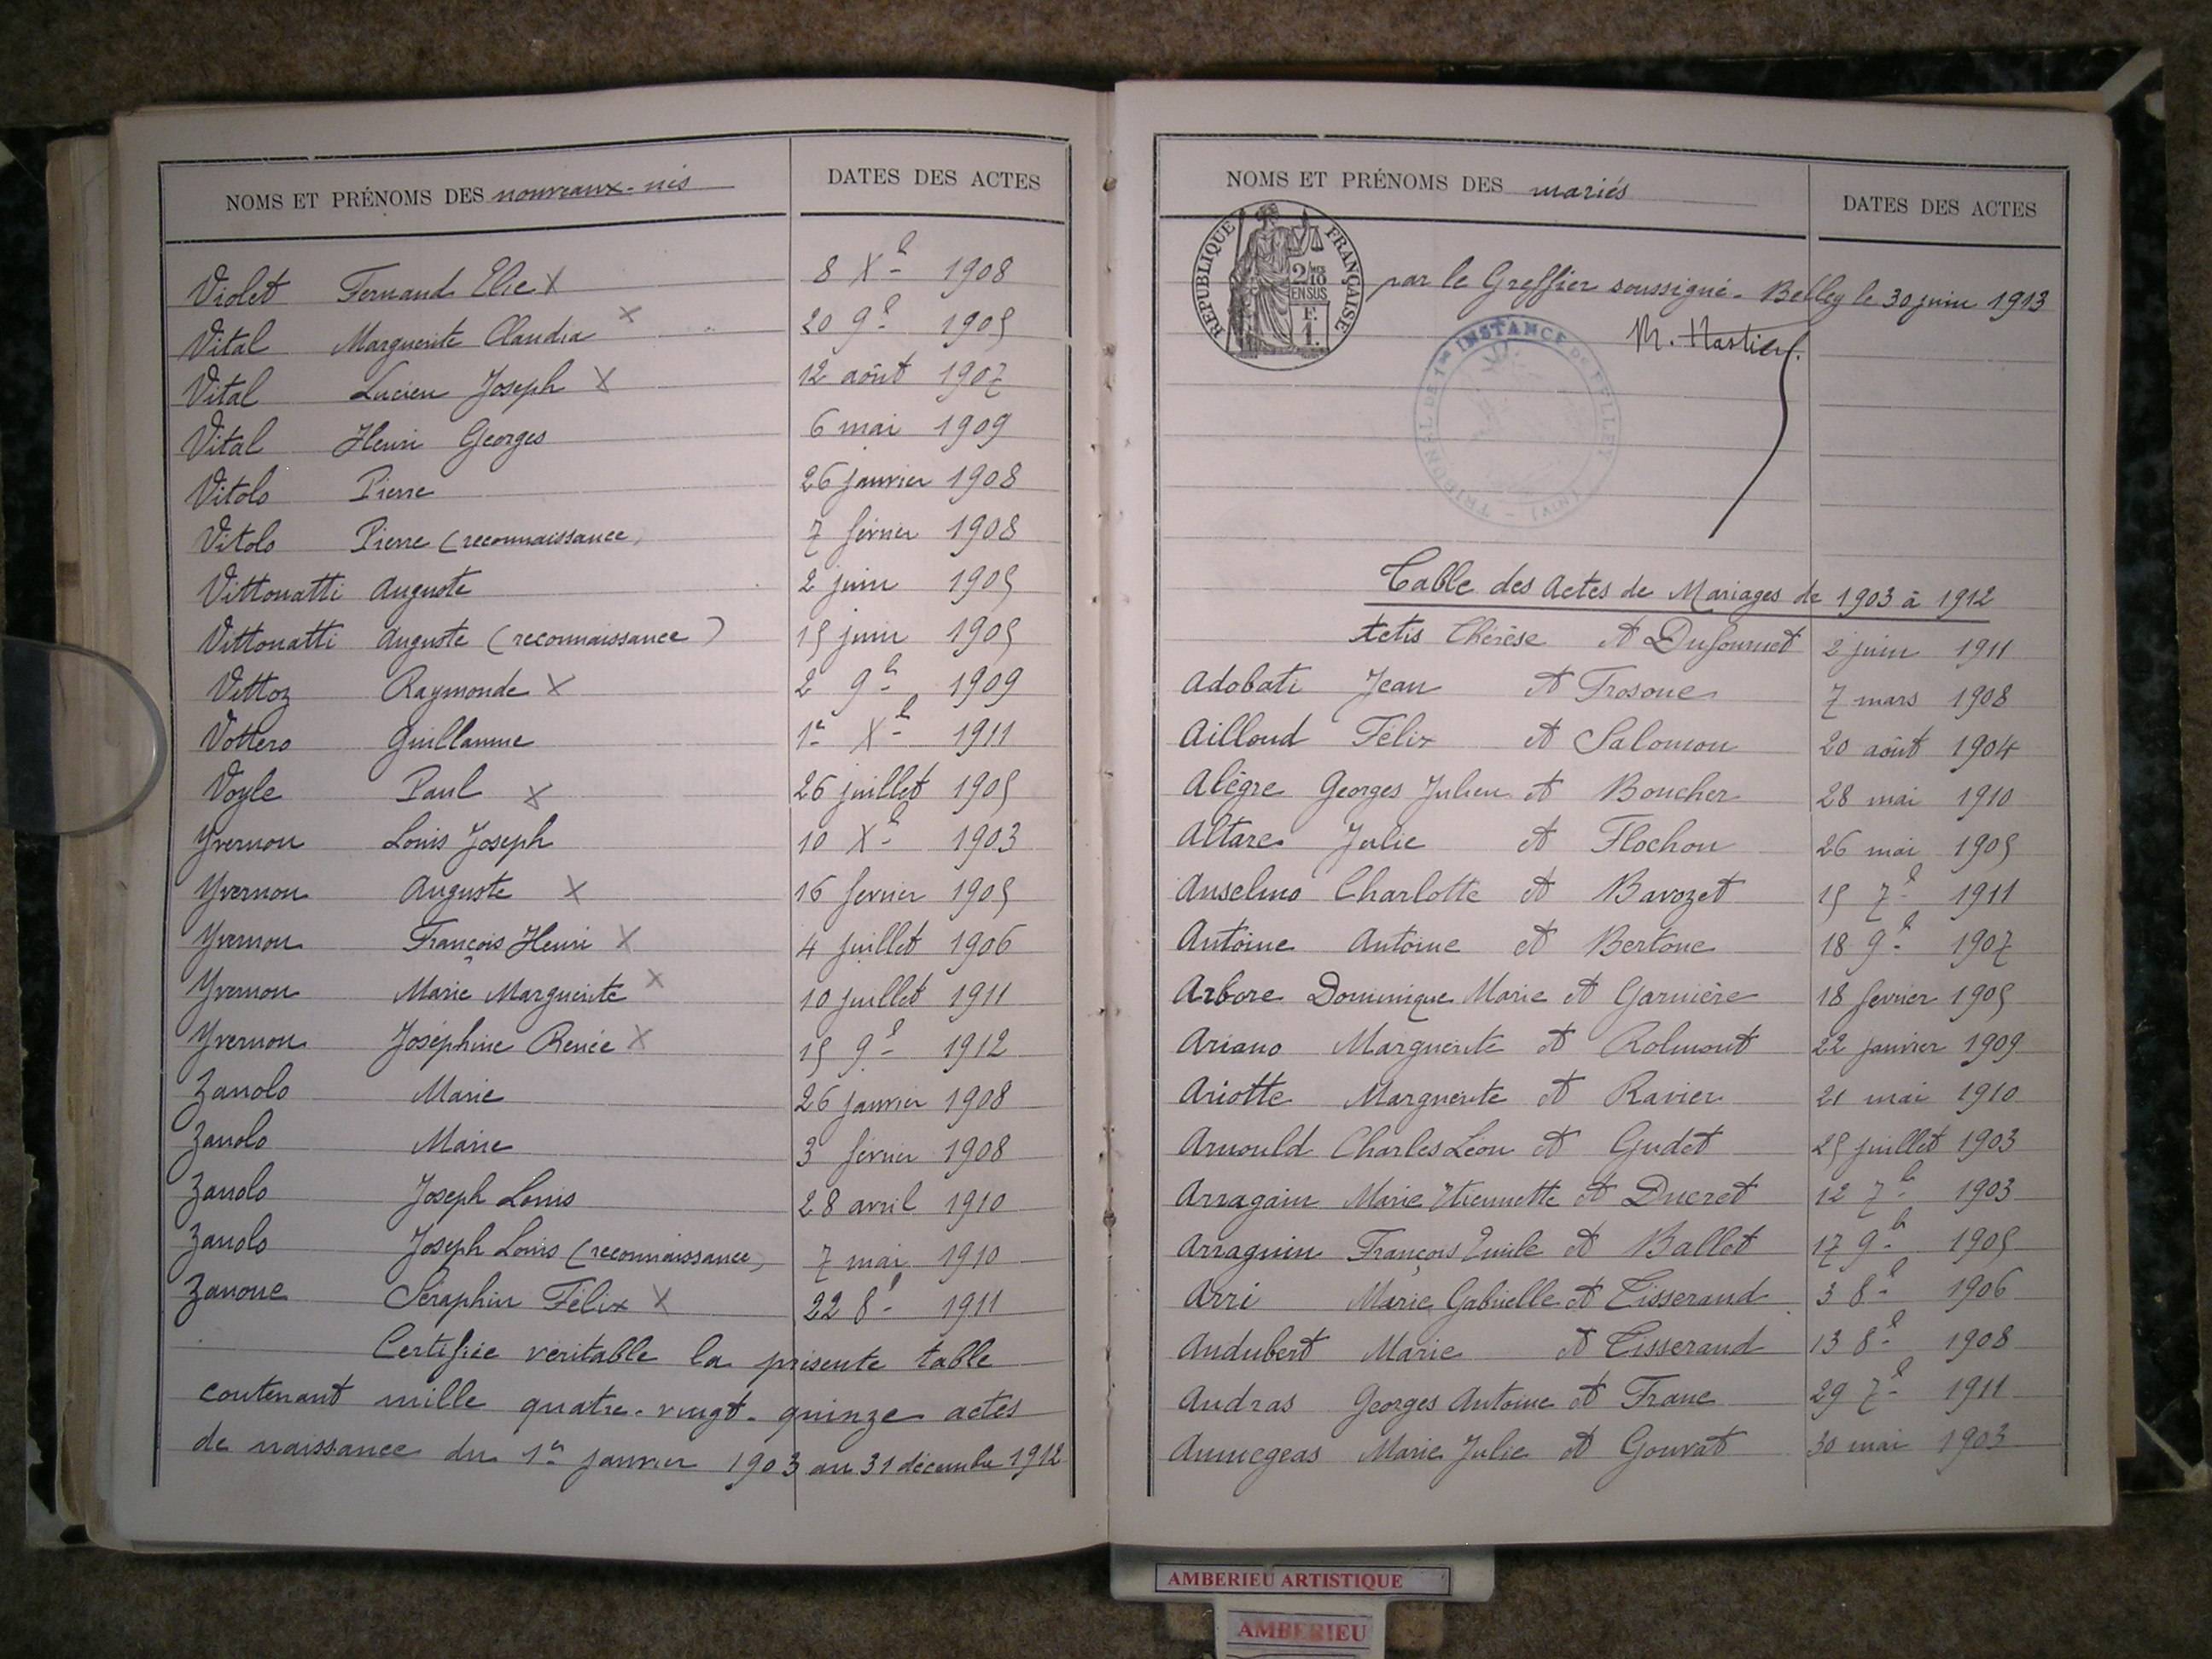 NOMS ET PRÉNOMS DES nouveaux-nés DATES DES ACTES
Violet Fernand Elie X 8 Xe 1908
Vital Marguerite Claudia X 20 9e 1905
Vital Lucien Joseph X 12 août 1907
Vital Henri Georges 6 mai 1909
Vitolo Pierre 26 janvier 1908
Vitolo Pierre (reconnaissance) 7 février 1908
Vittonatti Auguste 2 juin 1905
Vittonatti Auguste (reconnaissance) 15 juin 1905
Vittoz Raymonde X 2 9bre 1909
Vottero Guillaume 1er Xe 1911
Voyle Paul X 26 juillet 1905
Yvernon Louis Joseph 10 Xe 1903
Yvernon Auguste X 16 février 1905
Yvernon François Henri X 4 juillet 1906
Yvernon Marie Marguerite X 10 juillet 1911
Yvernon Joséphine Renée X 15 9e 1912
Zanolo Marie 26 janvier 1908
Zanolo Marie 3 février 1908
Zanolo Joseph Louis 28 avril 1910
Zanolo Joseph Louis (reconnaissance) 7 mai 1910
Zanone Séraphin Félix X 22 8e 1911
Certifiée véritable la présente table
contenant mille quatre-vingt-quinze actes
de naissance du 1er janvier 1903 au 31 décembre 1912
NOMS ET PRÉNOMS DES mariés DATES DES ACTES
RÉPUBLIQUE FRANÇAISE
2/10 EN SUS
F. 1.
par le Greffier soussigné - Belley le 30 juin 1913
TRIBUNAL DE 1re INSTANCE DE BELLEY (AIN)
Table des Actes de Mariages de 1903 à 1912
Actis Thérèse et Dufournet 2 juin 1911
Adobati Jean et Frosone 7 mars 1908
Ailloud Félix et Salomon 20 août 1904
Alègre Georges Julien et Boucher 28 mai 1910
Altare Julie et Flochon 26 mai 1905
Anselmo Charlotte et Bavozet 15 7e 1911
Antoine Antoine et Bertone 18 9e 1907
Arbore Dominique Marie et Garnière 18 février 1905
Ariano Marguerite et Rolmont 22 janvier 1909
Ariotte Marguerite et Ravier 21 mai 1910
Arnould Charles Léon et Gudet 25 juillet 1903
Arragain Marie Etiennette et Ducret 12 7bre 1903
Arraguin François Emile et Ballet 17 9bre 1905
Arri Marie Gabrielle et Tisserand 3 8e 1906
Audubert Marie et Tisserand 13 8e 1908
Audras Georges Antoine et Franc 29 7e 1911
Aumegeas Marie Julie et Gouvat 30 mai 1903
AMBERIEU ARTISTIQUE
AMBERIEU